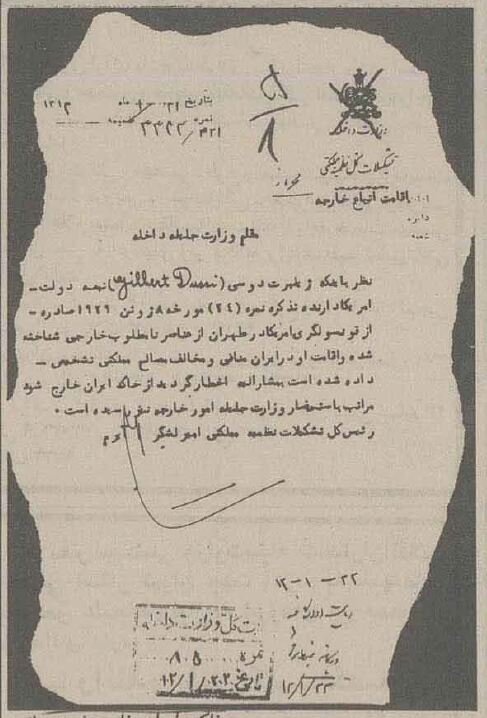 وزارت داخله
تشکیلات کل نظمیه مملکتی
اقامت اتباع خارجه
دایره
بتاریخ ماه ۱۳۱۲
نمره ضمیمه
محرمانه
مقام وزارت جلیله داخله
نظر باینکه ژیلبرت دوسی (Gilbert Dussi) تبعه دولت
امریکا دارنده تذکره نمره (۲۴) مورخه ۸ ژوئن ۱۹۲۹ صادره
از قونسولگری امریکا در طهران از عناصر نامطلوب خارجی شناخته
شده واقامت او در ایران منافی و مخالف مصالح مملکتی تشخیص
داده شده است بمشارالیه اخطار گردید از خاک ایران خارج شود
مراتب باستحضار وزارت جلیله امور خارجه نیز رسیده است ۰
رئیس کل تشکیلات نظمیه مملکتی امیر لشگر
۱۲-۱-۲۲
ثبت کل وزارت داخله
نمره ۸۰۵
تاریخ ۱۲/۱/۲۲
۱۲/۱/۲۳